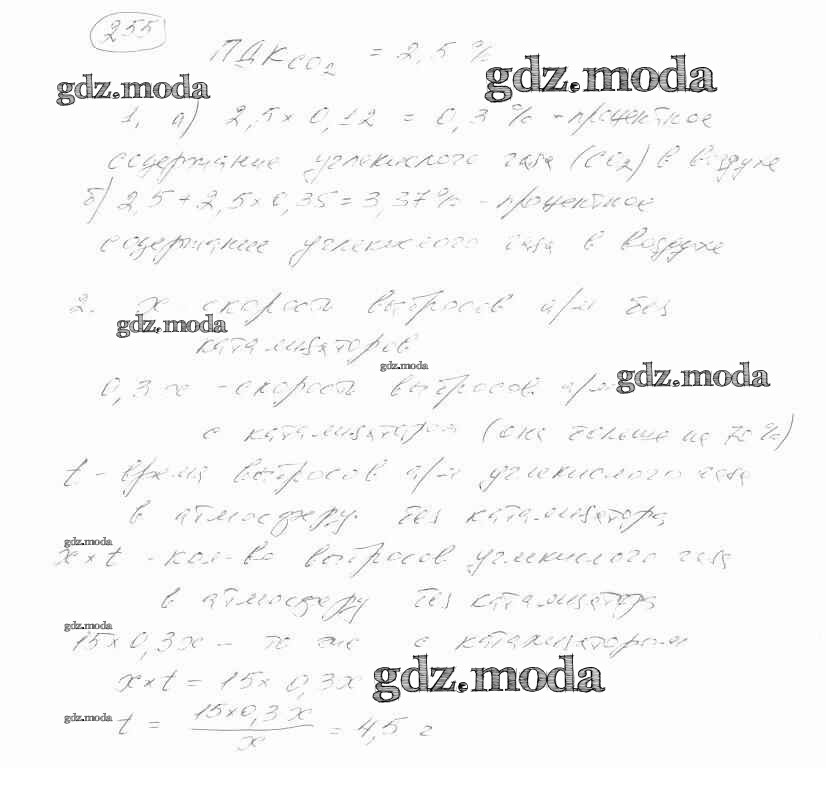 255
ПДК CO2 = 2,5 %
gdz.moda
gdz.moda
1. а) 2,5 × 0,12 = 0,3 % - процентное
содержание углекислого газа (CO2) в воздухе
б) 2,5 + 2,5 × 0,35 = 3,37 % - процентное
содержание углекислого газа в воздухе
2. x - скорость выбросов а/м без
gdz.moda
катализаторов
gdz.moda
0,3x - скорость выбросов а/м
gdz.moda
с катализатором (она меньше на 70 %)
t - время выбросов а/м углекислого газа
в атмосферу без катализатора
gdz.moda
x × t - кол-во выбросов углекислого газа
в атмосферу без катализатора
gdz.moda
15 × 0,3x - то же с катализатором
x × t = 15 × 0,3x
gdz.moda
gdz.moda
t = 15×0,3x / x = 4,5 г